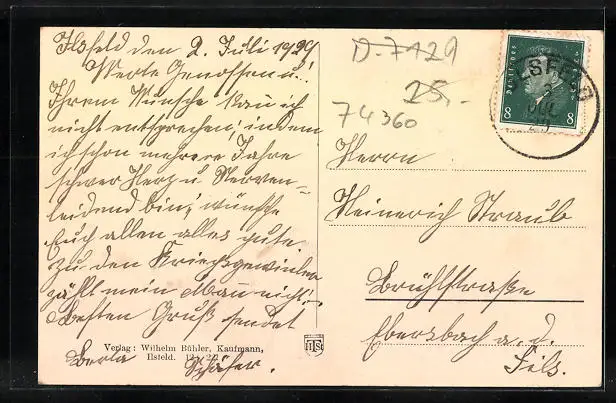 Ilsfeld den 2. Juli 1929
Werte Genossen u.!
Ihrem Wunsche kan ich
nicht entsprechen, indem
ich schon mehrere Jahre
schwer Herz u. Nerven-
leidend bin, wünsche
Euch allen alles gute.
Zu den Kriegsgewinler
zählt mein Man nicht.
Besten Gruß sendet
Berta Schäfer.
Verlag: Wilhelm Bühler, Kaufmann,
Ilsfeld.
D-7129
25,-
74360
DEUTSCHES REICH
8 8
ILSFELD
JUL
29
Herrn
Heinrich Straub
Brühlstraße
Ebersbach a. d.
Fils.